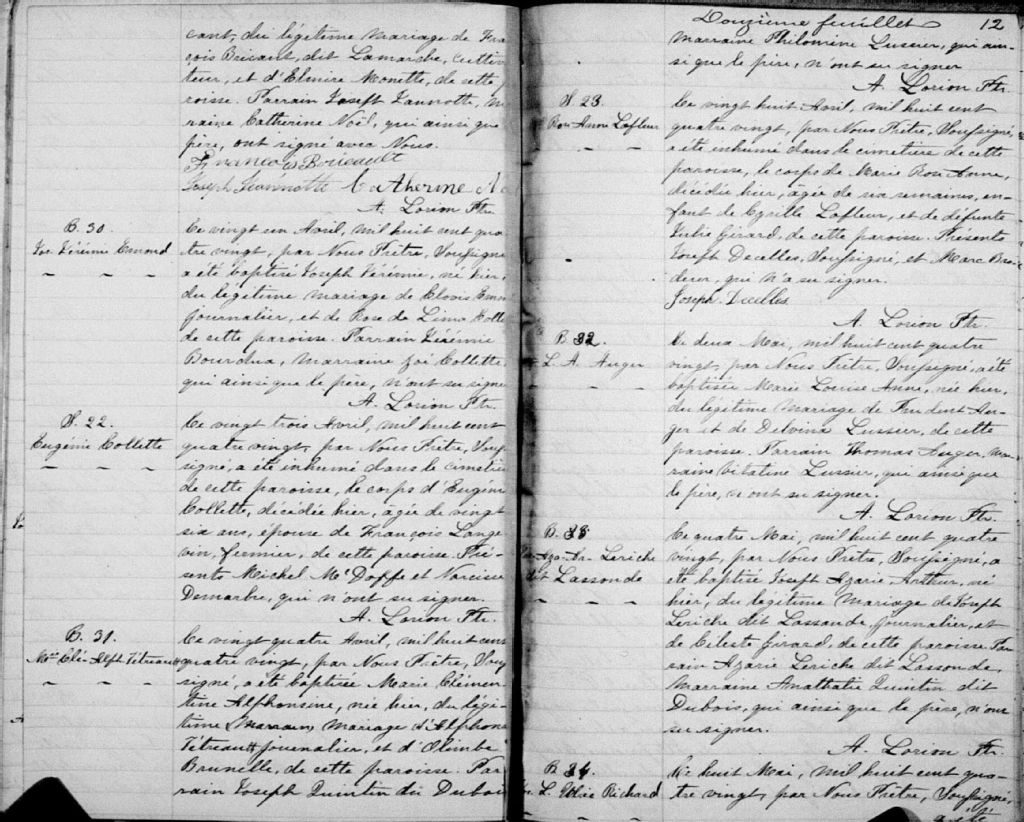 cant, du légitime mariage de Fran
çois Bricault, dit Lamarche, cultiva
teur, et d'Elmire Monette, de cette
roisse. Parrain Joseph Jannotte, m
raine Catherine Noël, qui ainsi que
père, ont signé avec Nous.
Francois Bricault
Joseph Jeannotte Catherine No
A. Lorion Ptr.
B. 30.
Jos. Jérémie Emond
Ce vingt un Avril, mil huit cent qua
tre vingt, par Nous Prêtre, Soussigné
a été baptisé Joseph Jérémie, né hier,
du légitime mariage de Clovis Emon
journalier, et de Rose de Lima Colle
de cette paroisse. Parrain Jérémie
Bourdua, Marraine Zoé Collette,
qui ainsi que le père, n'ont su signer
A. Lorion Ptr.
S. 22.
Eugénie Collette
Ce vingt trois Avril, mil huit cent
quatre vingt, par Nous Prêtre, Sous
signé, a été inhumé dans le cimetiè
de cette paroisse, le corps d'Eugéni
Collette, décédée hier, âgée de vingt
six ans, épouse de François Lange
vin, fermier, de cette paroisse. Pré
sents Michel McDoffe et Narcisse
Demarbre, qui n'ont su signer.
A. Lorion Ptr.
B. 31.
Mie Clé. Alph. Tétreault
Ce vingt quatre Avril, mil huit cent
quatre vingt, par Nous Prêtre, Sous
signé, a été baptisée Marie Clémen
tine Alphonsine, née hier, du légi
time Mariage d'Alphons
Tétreault journalier, et d'Olimbe
Brunelle, de cette paroisse. Par
rain Joseph Quintin dit Dubois
Douzième feuillet 12
Marraine Philomine Lussier, qui ain-
si que le père, n'ont su signer
A. Lorion Ptr.
S. 23.
Rose Anna Lafleur
Ce vingt huit Avril, mil huit cent
quatre vingt, par Nous Prêtre, Soussigné,
a été inhumé dans le cimetière de cette
paroisse, le corps de Marie Rose Anne,
décédée hier, âgée de six semaines, en-
fant de Cyrille Lafleur, et de défunte
Julie Girard, de cette paroisse. Présents
Joseph Decelles, Soussigné, et Marc Brou
deur, qui n'a su signer.
Joseph Decelles
A. Lorion Ptr.
B. 32.
L. A. Auger
Ce deux Mai, mil huit cent quatre
vingt, par Nous Prêtre, Soussigné, a été
baptisée Marie Louise Anne, née hier,
du légitime mariage de Prudent Au-
ger et de Delvina Lussier, de cette
paroisse. Parrain Thomas Auger, Mar
raine Vitaline Lussier, qui ainsi que
le père, n'ont su signer.
A. Lorion Ptr.
B. 33
Aza. Ar. Leriche
dit Lassonde
Ce quatre Mai, mil huit cent quatre
vingt, par Nous Prêtre, Soussigné, a
été baptisé Joseph Azarie Arthur, né
hier, du légitime Mariage de Joseph
Leriche dit Lassonde, journalier, et
de Céleste Girard, de cette paroisse. Par
rain Azarie Leriche dit Lassonde,
Marraine Anathalie Quintin dit
Dubois, qui ainsi que le père, n'ont
su signer.
A. Lorion Ptr.
B. 34.
L. Eldie Richard
Ce huit Mai, mil huit cent qua-
tre vingt, par Nous Prêtre, Soussigné,
a été